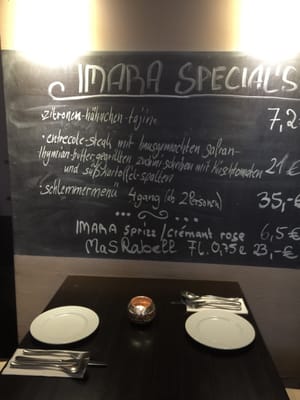 IMARA SPECIAL'S
• zitronen-hähnchen-tajine 7,2
• entrecote-steak mit hausgemachten safran-
thymian-butter, gegrillten zuchini-scheiben mit Kirschtomaten
und süßkartoffel-spalten 21 €
• schlemmermenü 4gang (ab 2 Personen) 35,-€
IMARA sprizz / crémant rose 6,5 €
Mas Rabell Fl. 0,75 l 23,-€